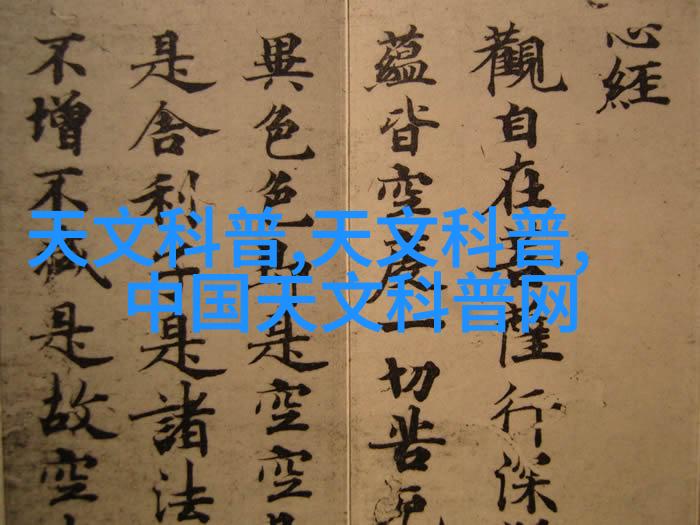 心經
觀自在菩薩行深
蘊皆空度一切苦厄
異色色即是空空
是舍利子是諸法
不增不減是故空
天文科普,天文科普,
中国天文科普网